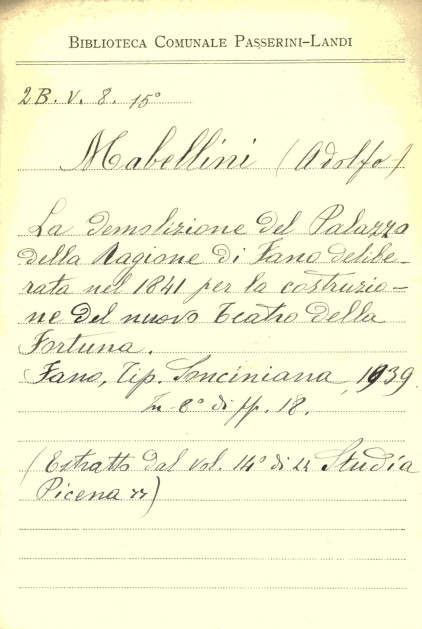 BIBLIOTECA COMUNALE PASSERINI-LANDI
2B. V. 8. 15°
Mabellini (Adolfo)
La demolizione del Palazzo
della Ragione di Fano delibe-
rata nel 1841 per la costruzio-
ne del nuovo Teatro della
Fortuna.
Fano, Tip. Sonciniana, 1939.
In 8° di pp. 18.
(Estratto dal vol. 14° di "Studia
Picena")